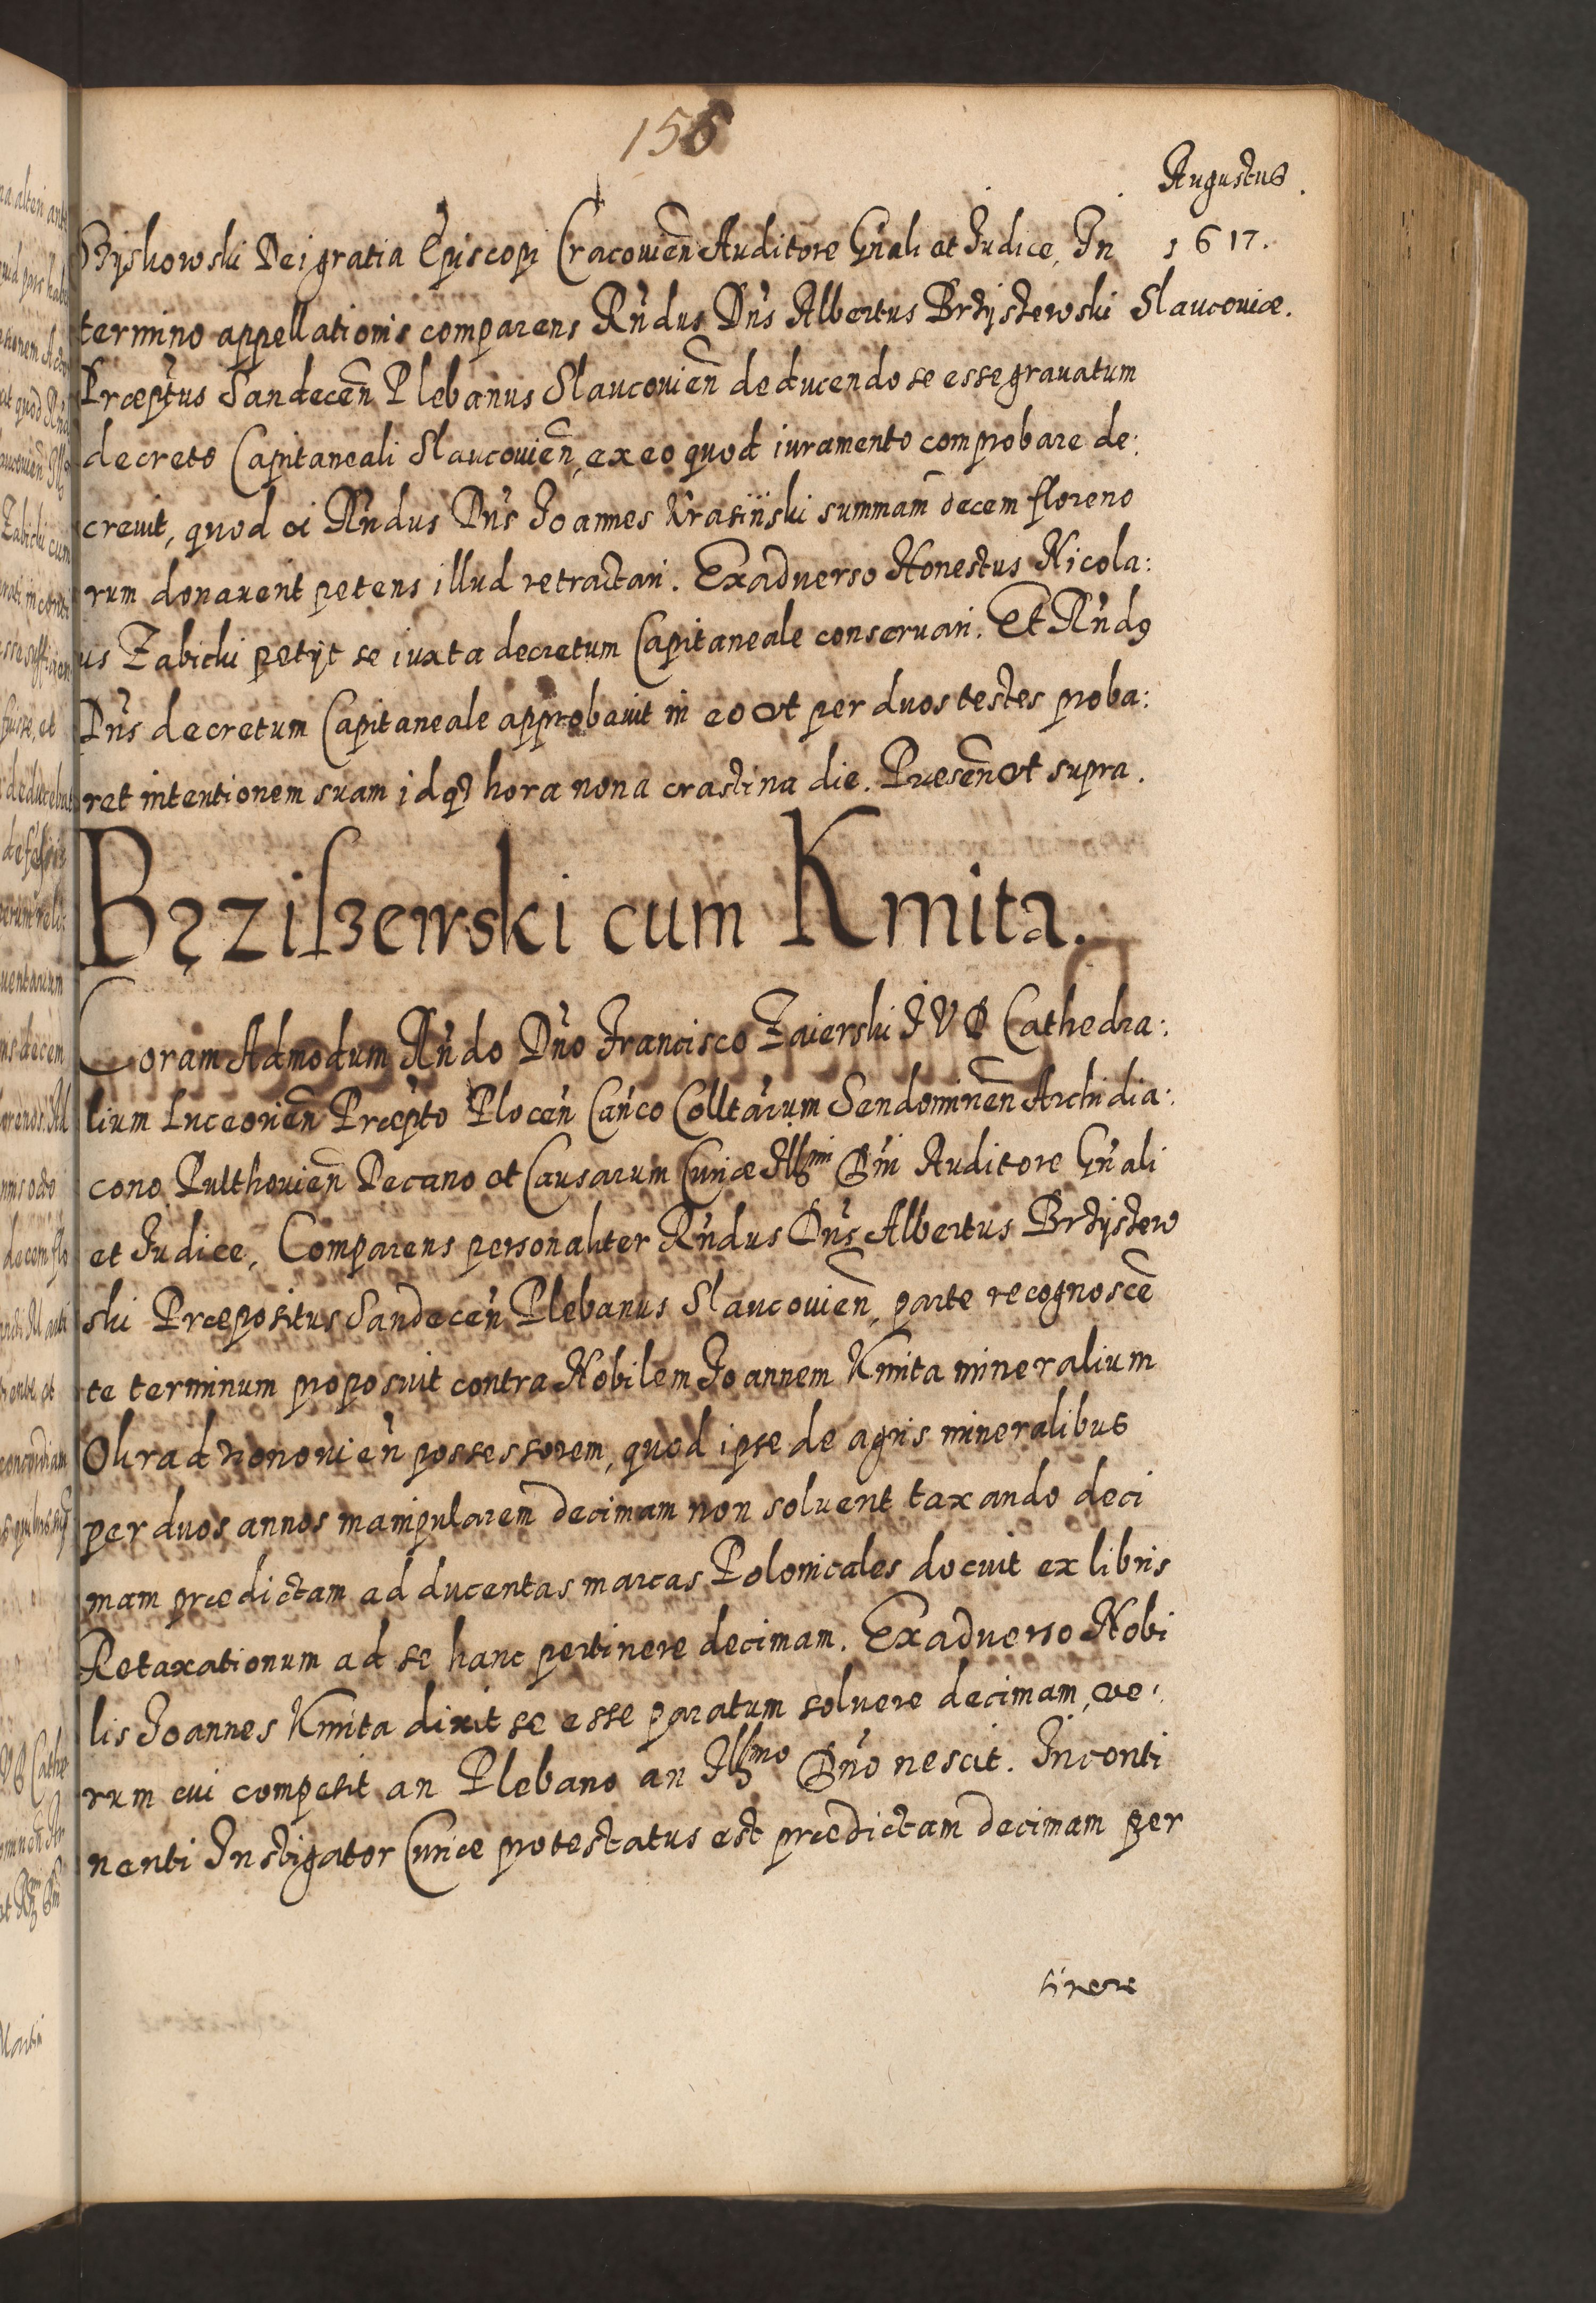 155
Augustus.
1617.
Slaucouiæ.
Bzyskowski Dei gratia Episcopi Cracouien̄ Auditore Gn̄ali et Iudice, In
termino appellationis comparens Rn̄dus Dn̄s Albertus Brzystewski
Præp̄tus Sandecen̄ Plebanus Slaucouien̄ deducendo se esse grauatum
decreto Capitaneali Slaucouien̄, ex eo quod iuramento comprobare de:
creuit, quod ei Rn̄dus Dn̄s Ioannes Krasiński summam decem floreno
rum donauerit petens illud retractari. Exaduerso Honestus Nicola:
us Zabicki petijt se iuxta decretum Capitaneale conseruari. Et Rn̄dꝰ
Dn̄s decretum Capitaneale approbauit in eo vt per duos testes proba:
ret intentionem suam idqꝫ hora nona crastina die. Præsen̄ vt supra.
Bęziſzewski cum Kmita.
Coram Admodum Rn̄do Dn̄o Francisco Zaierski IVD Cathedra:
lium Luceorien̄ Præp̄to Plocen̄ Can̄co Collta̅rum Sendomirien̄ Archidia:
cono Pulthouien̄ Decano et Causarum Curiæ Illmi Dn̄i Auditore Gn̄ali
et Iudice, Comparens personaliter Rn̄dus Dn̄s Albertus Brzystew
ski Præpositus Sandecen̄ Plebanus Slaucouien̄, parte recognoscē
te terminum proposuit contra Nobilem Ioannem Kmita mineralium
Okradzionouien̄ possessorem, quod ipse de agris mineralibus
per duos annos manipularem decimam non soluerit taxando deci
mam prædictam ad ducentas marcas Polonicales docuit ex libris
Retaxationum ad se hanc pertinere decimam. Exaduerso Nobi
lis Ioannes Kmita dixit se esse paratum soluere decimam, ve:
rum cui competit an Plebano an Illmo Dn̄o nescit. Inconti
nenti Instigator Curiæ protestatus est prædictam decimam per
tinere